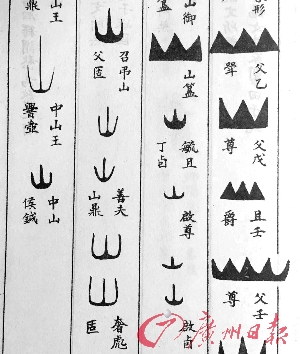 形
父乙
觶
父戊
尊
且壬
爵
父壬
尊
山御
簋
山簋
毓且
丁卣
啟尊
啟卣
召弔山
父𠤳
善夫
山鼎
奢彪
𠤳
山王
鼎
中山王
響壺
中山
侯鉞
廣州日報